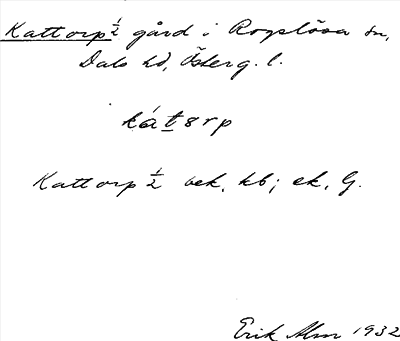 Kattorp ½ gård i Rogslösa sn,
Dals hd, Österg. l.
kátorp
Kattorp ½ bek. kb; ek, G.
Erik Alm 1932